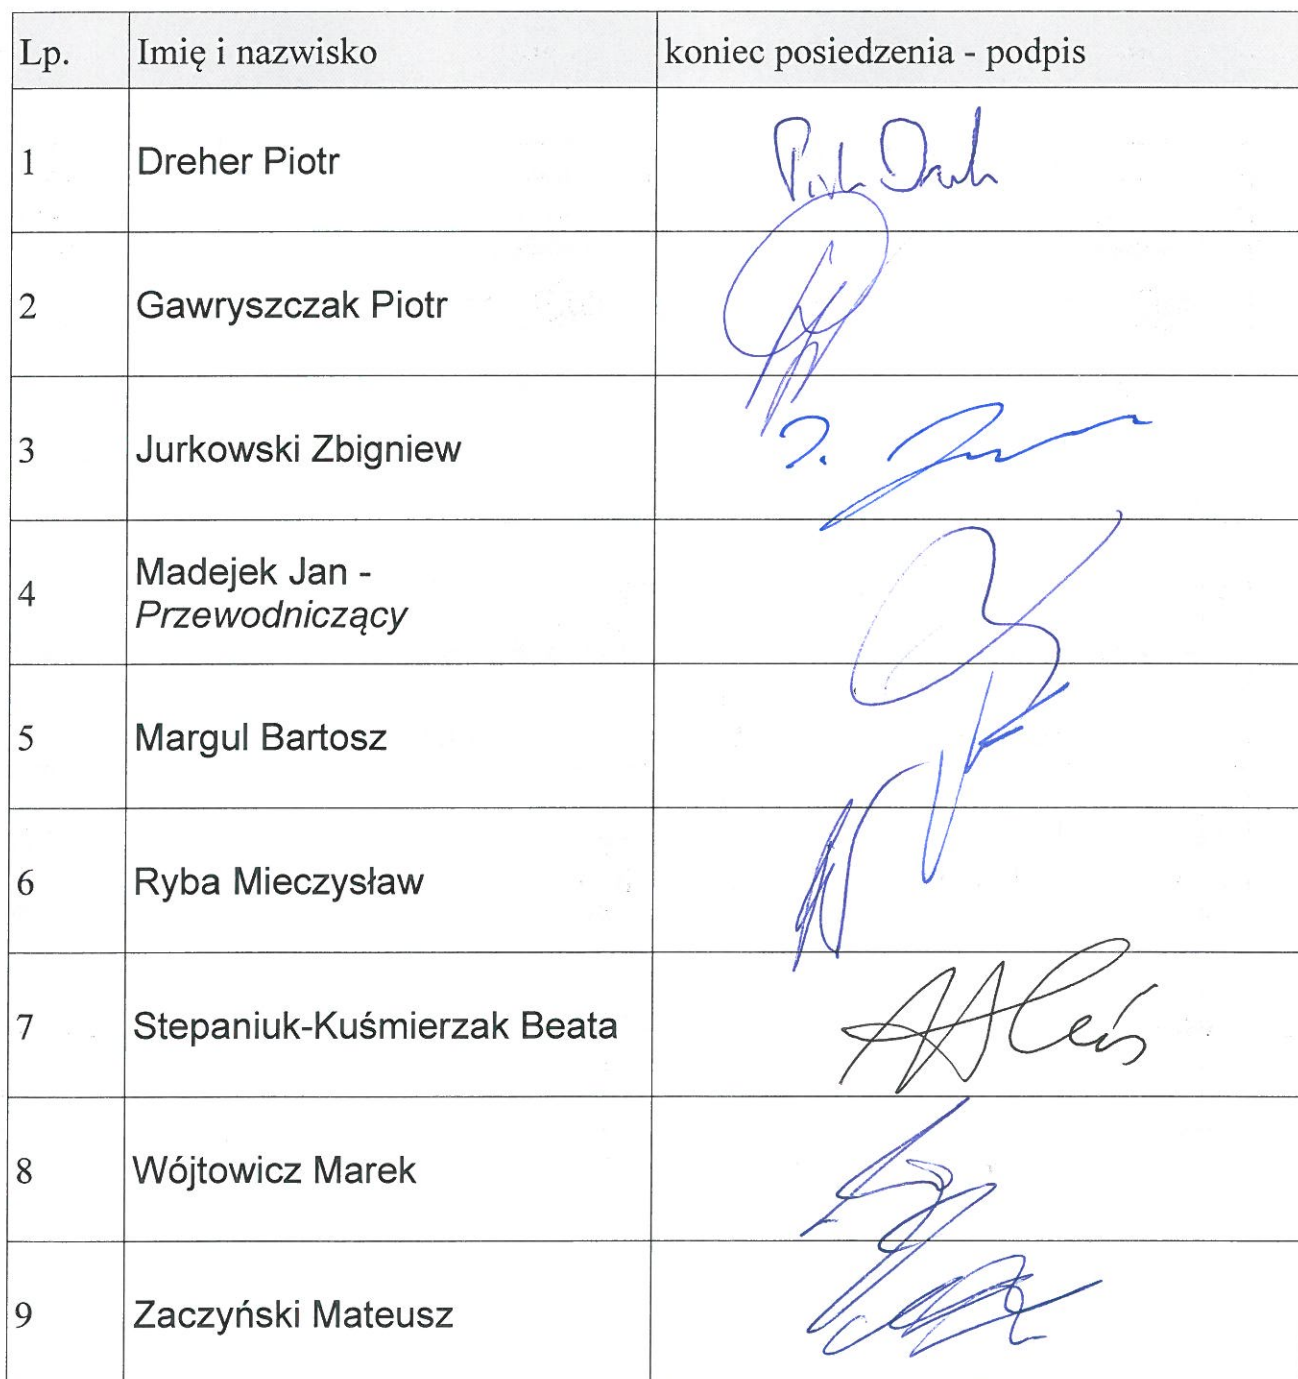 Lp. Imię i nazwisko koniec posiedzenia - podpis
1 Dreher Piotr
2 Gawryszczak Piotr
3 Jurkowski Zbigniew
4 Madejek Jan -
Przewodniczący
5 Margul Bartosz
6 Ryba Mieczysław
7 Stepaniuk-Kuśmierzak Beata
8 Wójtowicz Marek
9 Zaczyński Mateusz